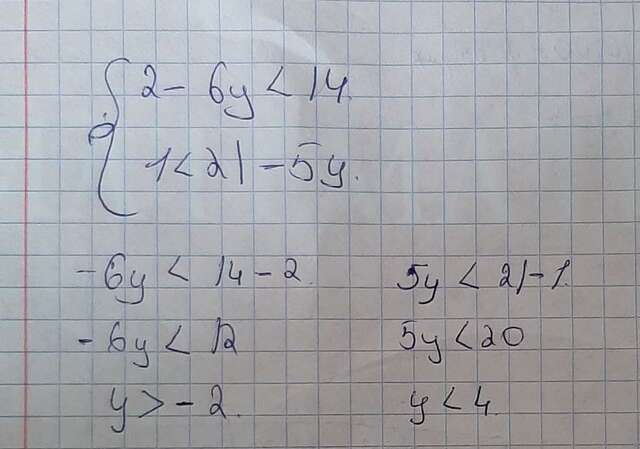 2 - 6y < 14.
1 < 21 - 5y.
-6y < 14 - 2.
5y < 21 - 1.
-6y < 12
5y < 20
y > -2.
y < 4.